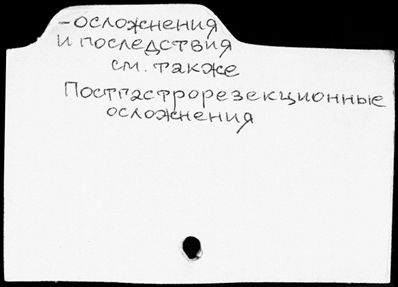 -осложнения
и последствия
см. также
Постгастрорезекционные
осложнения